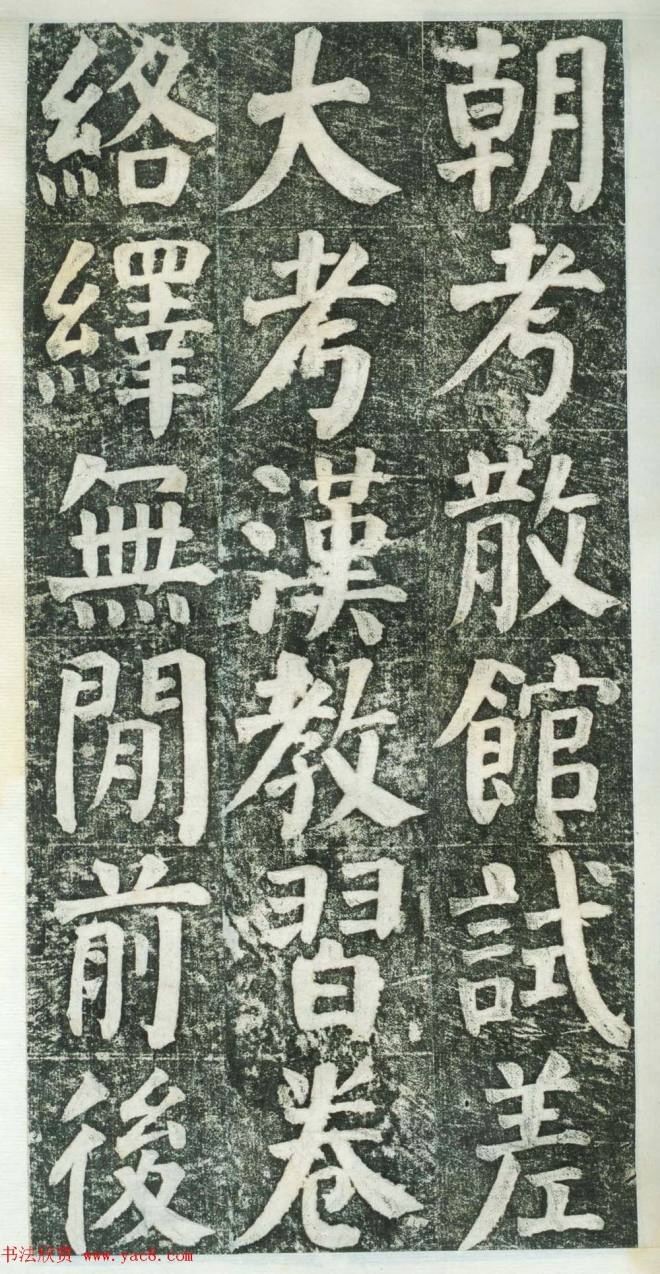 朝考散館試差
大考漢教習卷
絡繹無閒前後
书法欣赏 www.yac8.com